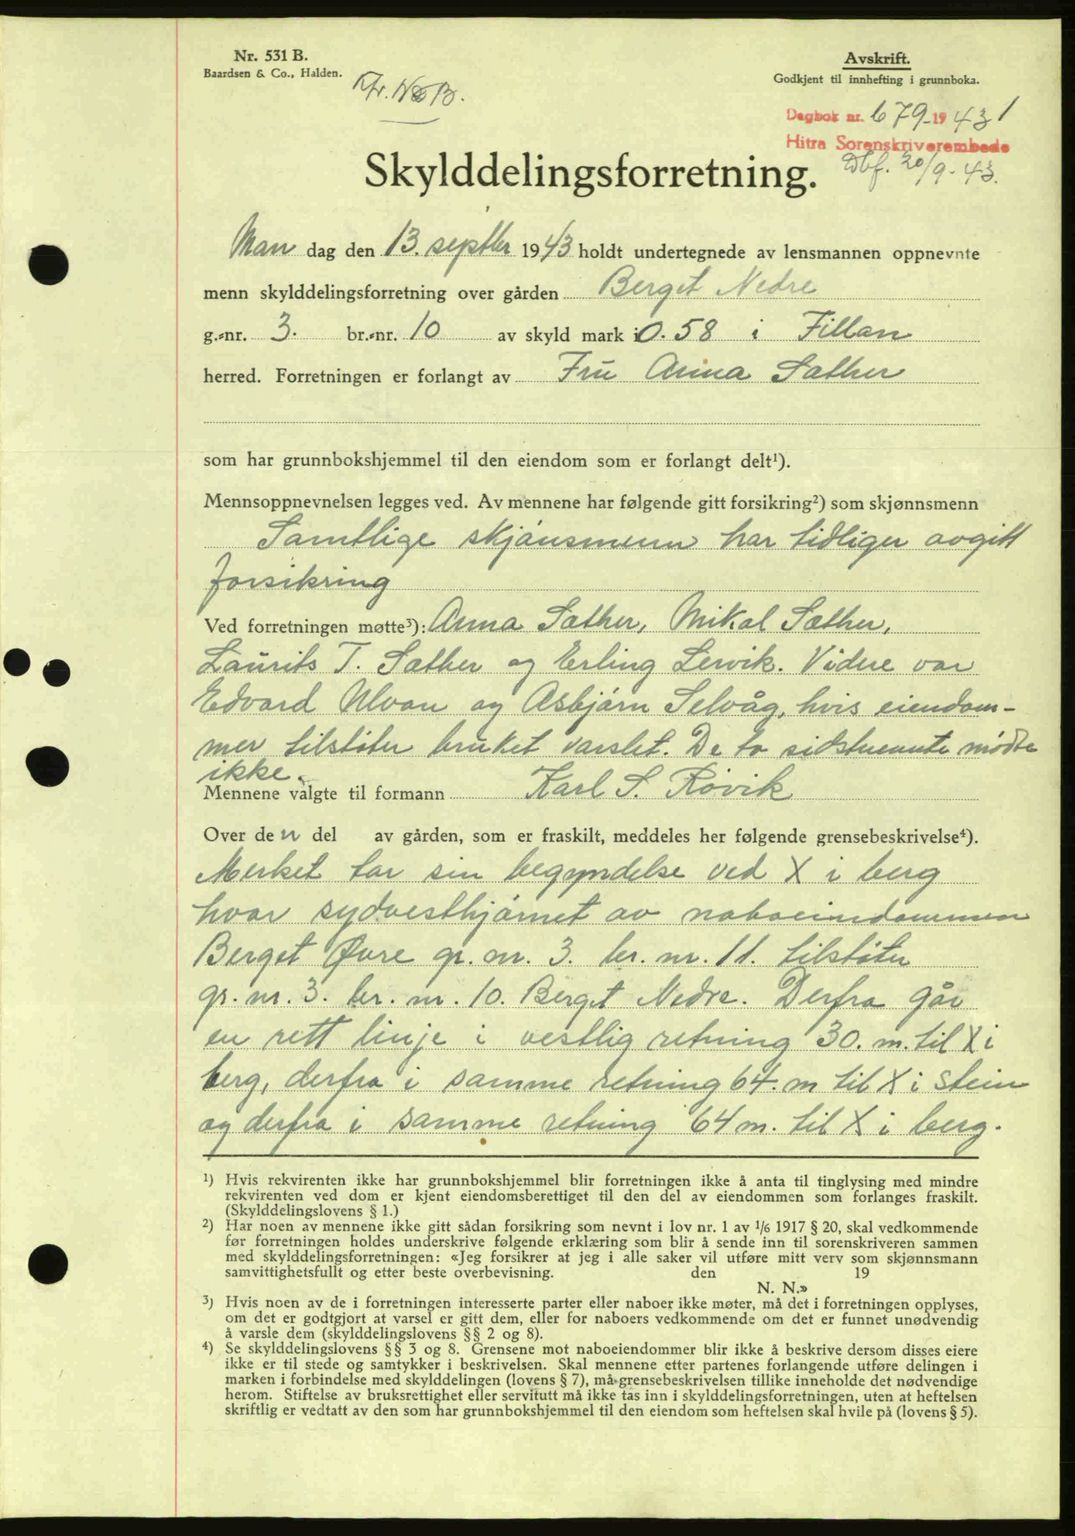 Nr. 531 B.
Baardsen & Co., Halden.
Avskrift.
Godkjent til innhefting i grunnboka.
Dagbok nr. 679-1943
Hitra Sorenskriverembede
Dbf. 20/9-43.
Skylddelingsforretning.
Man dag den 13. septbr 1943 holdt undertegnede av lensmannen oppnevnte
menn skylddelingsforretning over gården Berget Nedre
g.-nr. 3. br.-nr. 10 av skyld mark 0.58 i Fillan
herred. Forretningen er forlangt av Fru Anna Sæther
som har grunnbokshjemmel til den eiendom som er forlangt delt¹).
Mennsoppnevnelsen legges ved. Av mennene har følgende gitt forsikring²) som skjønnsmenn
Samtlige skjönsmenn har tidliger avgitt
forsikring
Ved forretningen møtte³): Anna Sæther, Mikal Sæther,
Laurits T. Sæther og Erling Lervik. Videre var
Edvard Ulvan og Asbjörn Selvåg, hvis eiendom-
mer tilstöter bruket varslet. De to sidstnevnte mödte
ikke.
Mennene valgte til formann Karl S. Rövik
Over den del av gården, som er fraskilt, meddeles her følgende grensebeskrivelse⁴).
Merket tar sin begyndelse ved X i berg
hvor sydvesthjörnet av naboeiendommen
Berget Øvre gr. nr. 3. br. nr. 11. tilstöter
gr. nr. 3. br. nr. 10. Berget Nedre. Derfra går
en rett linje i vestlig retning 30. m. til X i
berg, derfra i samme retning 64. m til X i stein
og derfra i samme retning 64 m. til X i berg.
¹) Hvis rekvirenten ikke har grunnbokshjemmel blir forretningen ikke å anta til tinglysing med mindre
rekvirenten ved dom er kjent eiendomsberettiget til den del av eiendommen som forlanges fraskilt.
(Skylddelingslovens § 1.)
²) Har noen av mennene ikke gitt sådan forsikring som nevnt i lov nr. 1 av ¹/₆ 1917 § 20, skal vedkommende
før forretningen holdes underskrive følgende erklæring som blir å sende inn til sorenskriveren sammen
med skylddelingsforretningen: «Jeg forsikrer at jeg i alle saker vil utføre mitt verv som skjønnsmann
samvittighetsfullt og etter beste overbevisning. den 19
N. N.»
³) Hvis noen av de i forretningen interesserte parter eller naboer ikke møter, må det i forretningen opplyses,
om det er godtgjort at varsel er gitt dem, eller for naboers vedkommende om det er funnet unødvendig
å varsle dem (skylddelingslovens §§ 2 og 8).
⁴) Se skylddelingslovens §§ 3 og 8. Grensene mot naboeiendommer blir ikke å beskrive dersom disses eiere
ikke er til stede og samtykker i beskrivelsen. Skal mennene etter partenes forlangende utføre delingen i
marken i forbindelse med skylddelingen (lovens § 7), må grensebeskrivelsen tillike inneholde det nødvendige
herom. Stiftelse av bruksrettighet eller servitutt må ikke tas inn i skylddelingsforretningen, uten at heftelsen
skriftlig er vedtatt av den som har grunnbokshjemmel til den eiendom som heftelsen skal hvile på (lovens § 5).